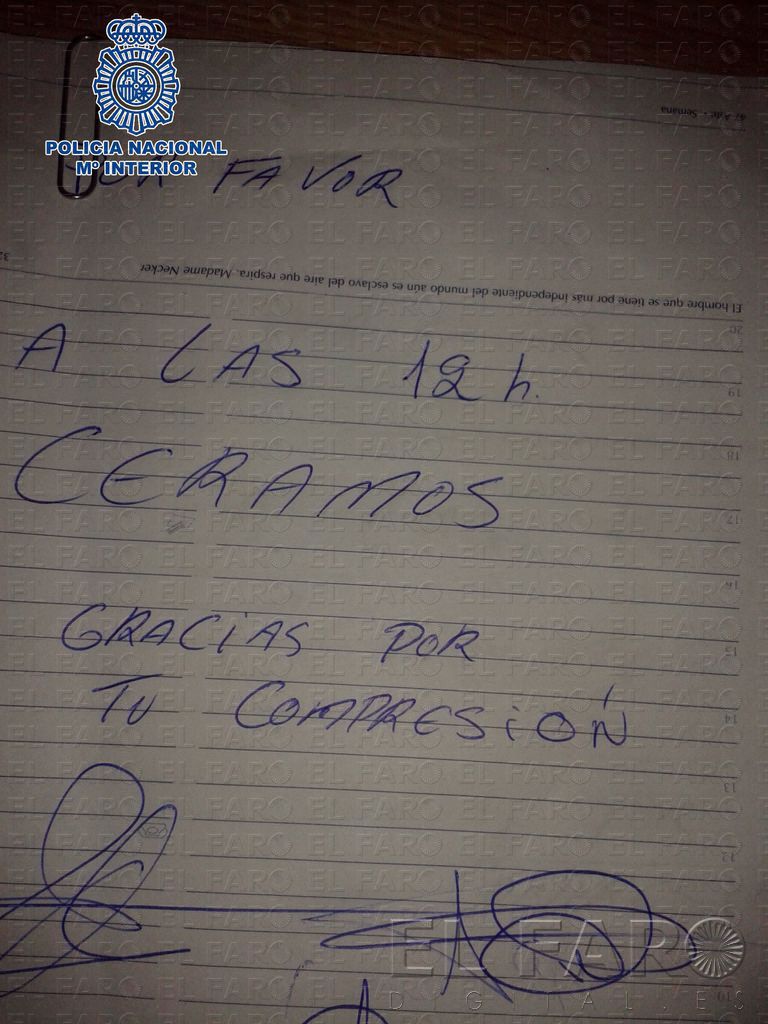 POLICIA NACIONAL
Mº INTERIOR
47 Adc - Semana
POR FAVOR
El hombre que se tiene por más independiente del mundo aún es esclavo del aire que respira. Madame Necker
32
20
A LAS 12 h.
19
18
CERAMOS
17
16
GRACIAS POR
15
TU COMPRESIÓN
14
13
12
EL FARO
DIGITAL.ES
10